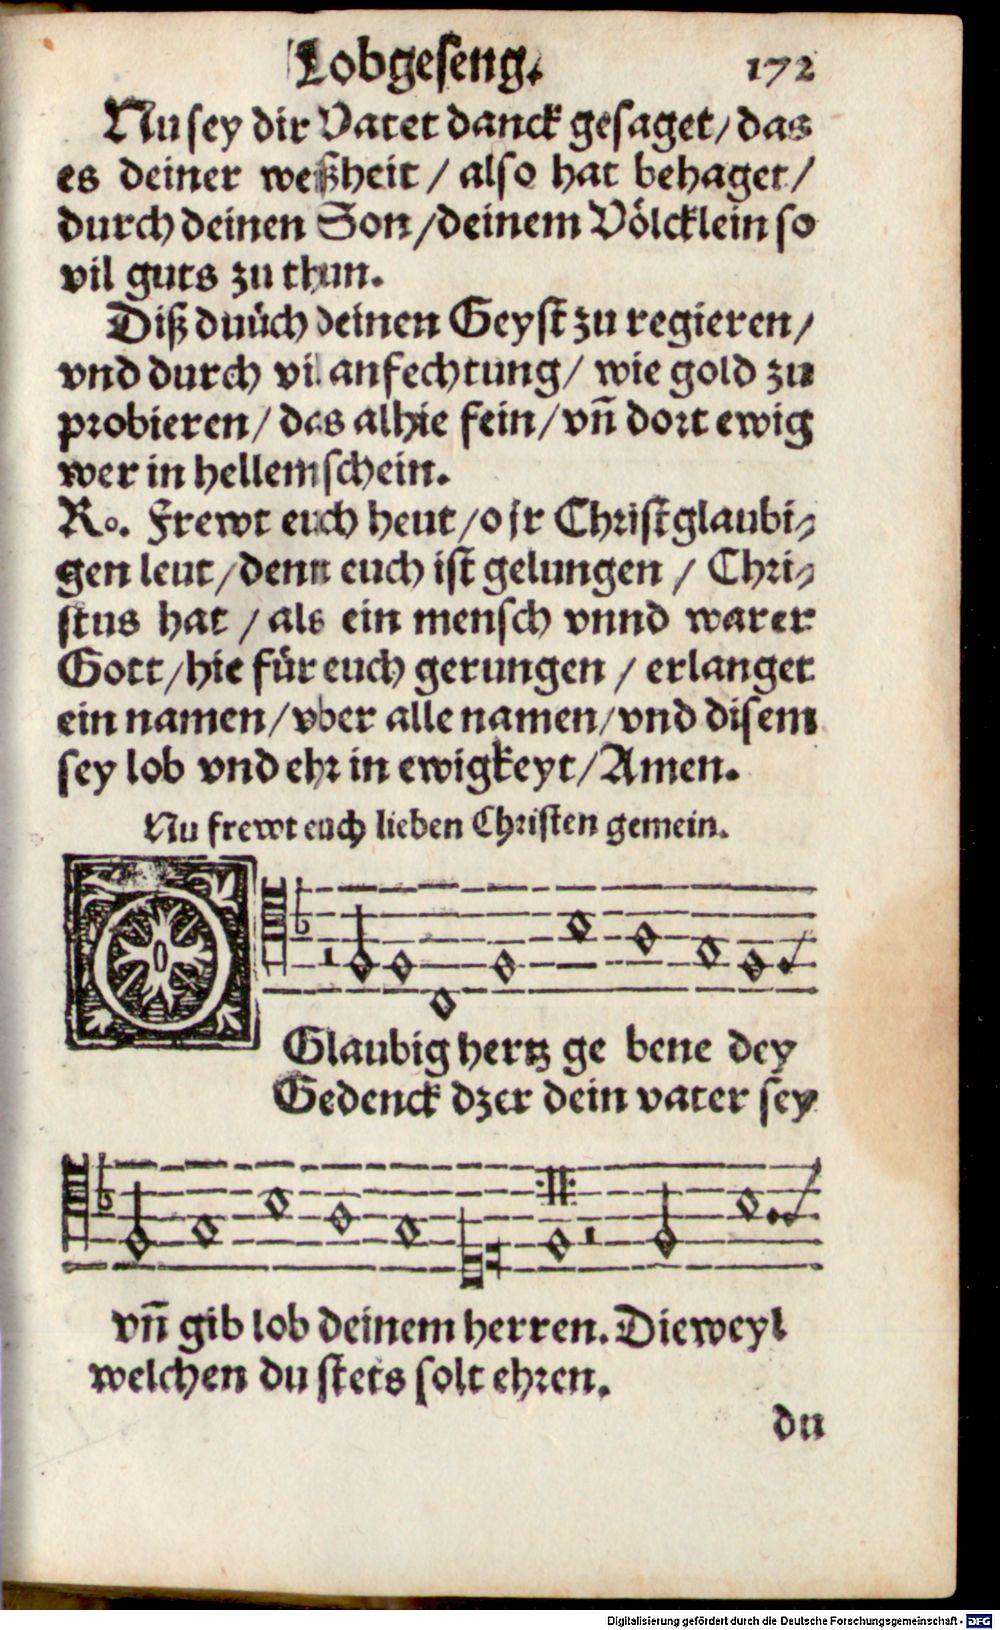 Lobgeseng. 172
Nu sey dir Vatet danck gesaget / das
es deiner weßheit / also hat behaget /
durch deinen Son / deinem Völcklein so
vil guts zu thun.
Diß duüch deinen Geyst zu regieren /
vnd durch vil anfechtung / wie gold zu
probieren / das alhie fein / vñ dort ewig
wer in hellem schein.
Ro. Frewt euch heut / o jr Christglaubi⸗
gen leut / denn euch ist gelungen / Chri⸗
stus hat / als ein mensch vnnd warer
Gott / hie für euch gerungen / erlanget
ein namen / vber alle namen / vnd disem
sey lob vnd ehr in ewigkeyt / Amen.
Nu frewt euch lieben Christen gemein.
O
Glaubig hertz ge bene dey
Gedenck dzer dein vater sey
vñ gib lob deinem herren. Dieweyl
welchen du stets solt ehren.
du
Digitalisierung gefördert durch die Deutsche Forschungsgemeinschaft - DFG